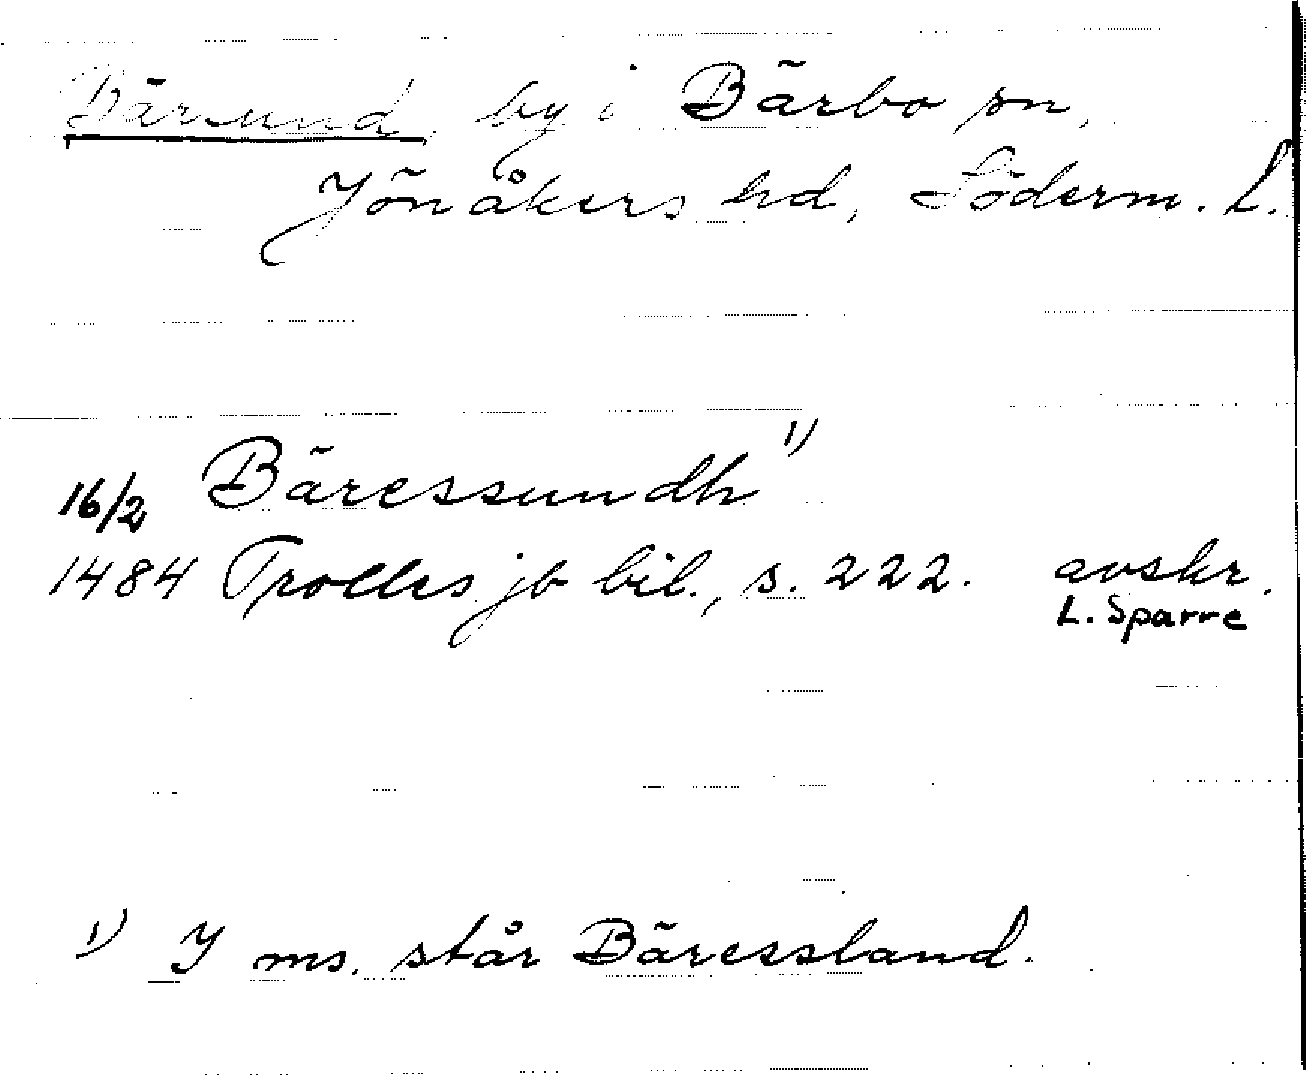 Bärsund, by i Bärbo sn,
Jönåkers hd, Söderm. L.
16/2 Bäressundh 1)
1484 Trolles jb bil., s. 222. avskr.
L. Sparre
1) I ms. står Bäressland.